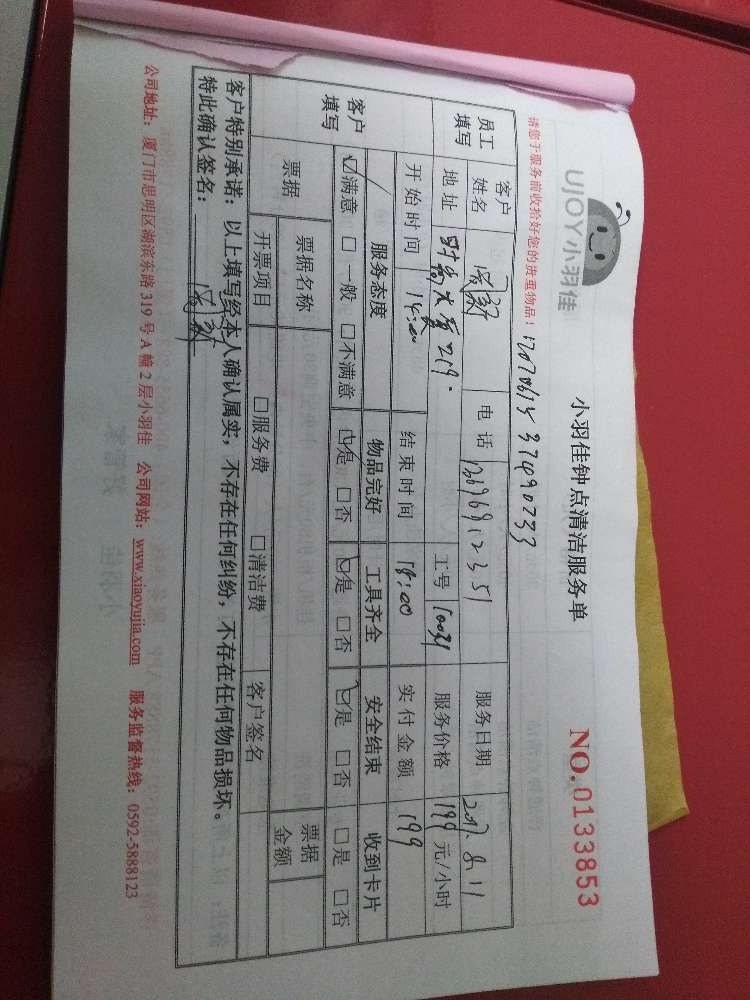 UJOY小羽佳
小羽佳钟点清洁服务单
NO.0133853
请您于服务前收拾好您的贵重物品！
员工填写 客户姓名 电话 13696912351 服务日期 2017.8.11
地址 219. 工号 10031 服务价格 199 元/小时
开始时间 14:00 结束时间 18:00 实付金额 199
客户填写 服务态度 物品完好 工具齐全 安全结束 收到卡片
☑满意 □一般 □不满意 ☑是 □否 ☑是 □否 ☑是 □否 □是 □否
票据 票据名称 客户签名 票据金额
开票项目 □服务费 □清洁费
客户特别承诺：以上填写经本人确认属实，不存在任何纠纷，不存在任何物品损坏。
特此确认签名：
公司地址：厦门市思明区湖滨东路 319 号 A 幢 2 层小羽佳 公司网站：www.xiaoyujia.com 服务监督热线：0592-5888123